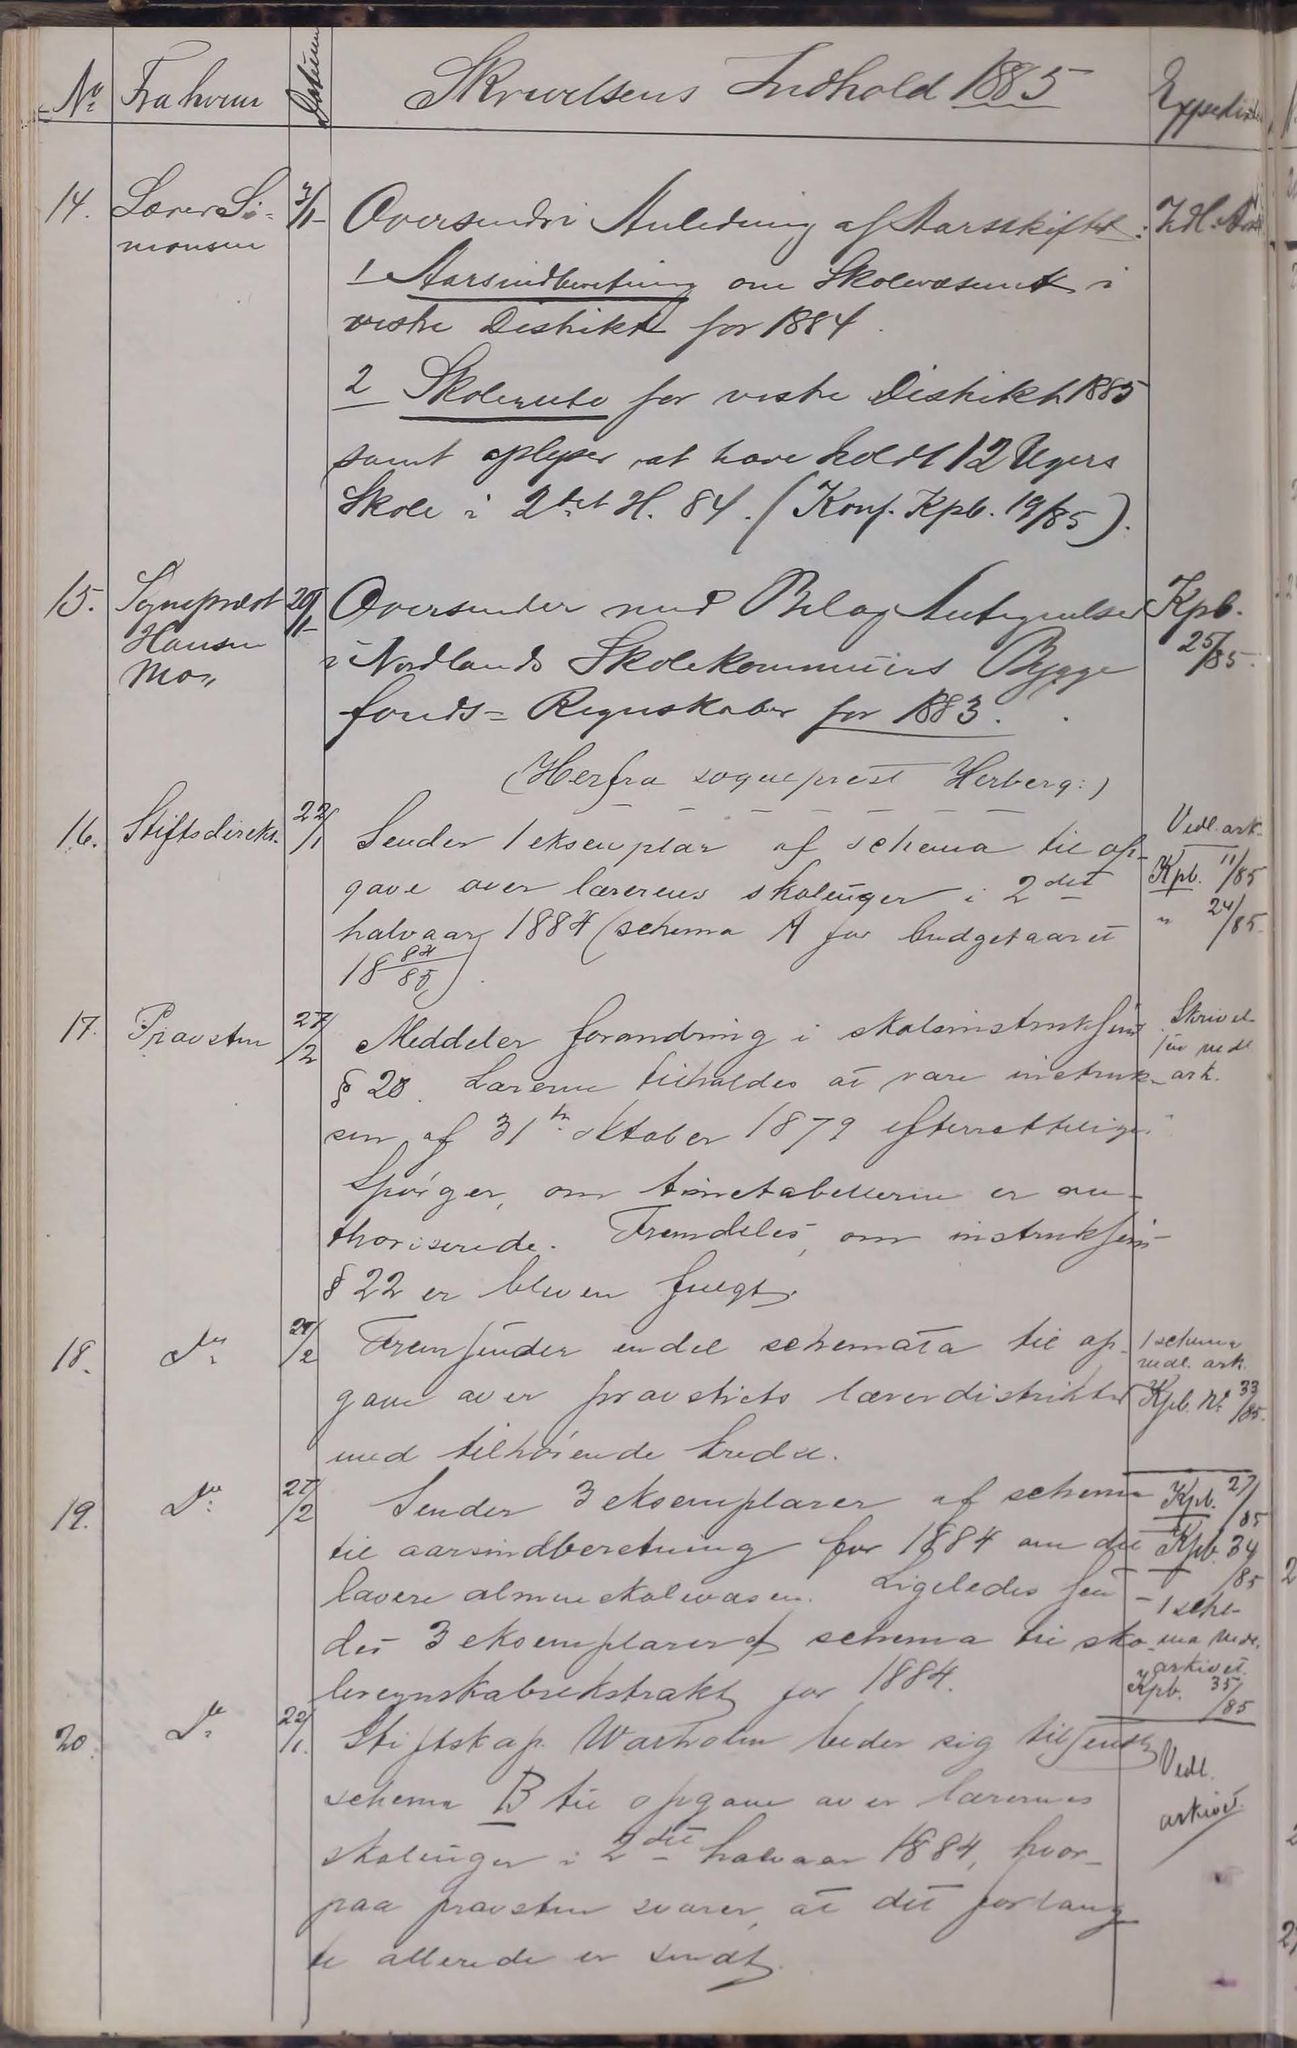 No. Fra hvem Datum Skrivelsens Indhold 1885 Expedition
14. Lærer Si- 3/1 Oversender i Anledning af Aarsskiftet: Vdl. Ark
monsen
1 Aarsindberetning om Skolevæsenet i
vestre Distrikt for 1884.
2 Skolerute for vestre Distrikt 1885
samt oplyser at have holdt 12 Ugers
Skole i 2det H. 84. (Konf. Kpb. 19/85).
15. Sognepræst 20/1 Oversender med Bilag Antegnelser Kpb.
Hansen i Nordlands Skolekommunes Bygge 25/85.
Mo,, fonds- Regnskaber for 1883.
(Herfra sogneprest Herberg:)
16. Stiftsdirekt. 22/1 Sender 1 eksemplar af schema til op- Vedl. ark.
gave over lærernes skoleuger i 2det Kpb. 11/85
halvaar 1884 (schema A for budgetaaret " 24/85.
18 84/85).
17. Provsten 27/2 Meddeler forandring i skoleinstruksens Skrivel-
§ 20. Lærerne tilholdes at være instruk- sen vedl. ark.
sen af 31te oktober 1879 efterrettelige.
Spörger, om timetabellerne er au-
thoriserede. Fremdeles, om instruksens
§ 22 er bleven fulgt.
18. Do 27/2 Fremsender endel schemata til op- 1 schema vedl. ark.
gave over provstiets lærerdistrikter Kpb. No 33/85.
med tilhörende kredse.
19. Do 27/2 Sender 3 eksemplarer af schema Kpb. 27/85
til aarsindberetning for 1884 om det Kpb. 34/85
lavere almueskolevæsen. Ligeledes sen- 1 sche-
des 3 eksemplarer af schema til sko- ma vedl. arkivet.
leregnskabsekstrakt for 1884. Kpb. 35/85
20. Do 22/1. Stiftskap. Warholm beder sig tilsendt Vedl.
schema B til opgave over lærernes arkivet.
skoleuger i 2det halvaar 1884, hvor-
paa provsten svarer, at det forlang-
te allerede er sendt.